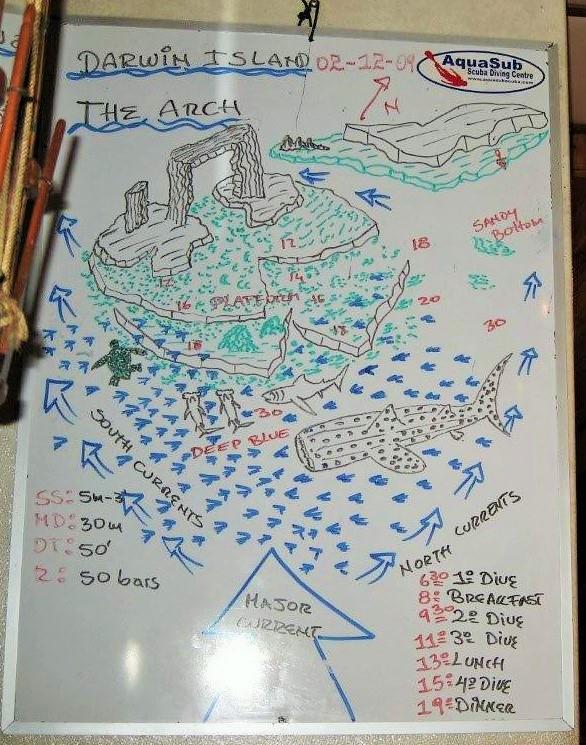 DARWIN ISLAND 02-12-09
AquaSub
Scuba Diving Centre
www.aquasubscuba.com
THE ARCH
N
SANDY
BOTTOM
12
18
12
14
16 PLATFORM 16
20
18
18
30
30
DEEP BLUE
SOUTH CURRENTS
NORTH CURRENTS
SS: 5m-3'
MD: 30m
DT: 50'
R: 50 bars
MAJOR
CURRENT
6:30 1º DIVE
8: BREAKFAST
9:30 2º DIVE
11: 3º DIVE
13: LUNCH
15: 4º DIVE
19: DINNER